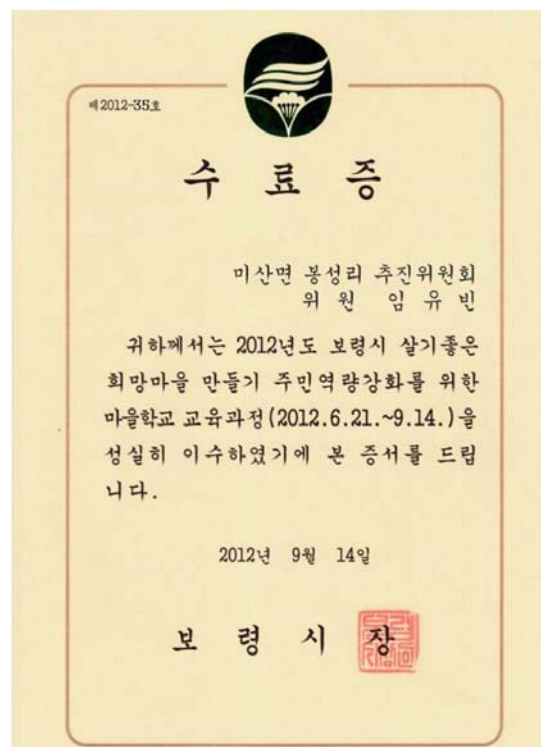 제2012-35호
수 료 증
미산면 봉성리 추진위원회
위 원 임 유 빈
귀하께서는 2012년도 보령시 살기좋은
희망마을 만들기 주민역량강화를 위한
마을학교 교육과정(2012.6.21.~9.14.)을
성실히 이수하였기에 본 증서를 드립
니다.
2012년 9월 14일
보 령 시 장